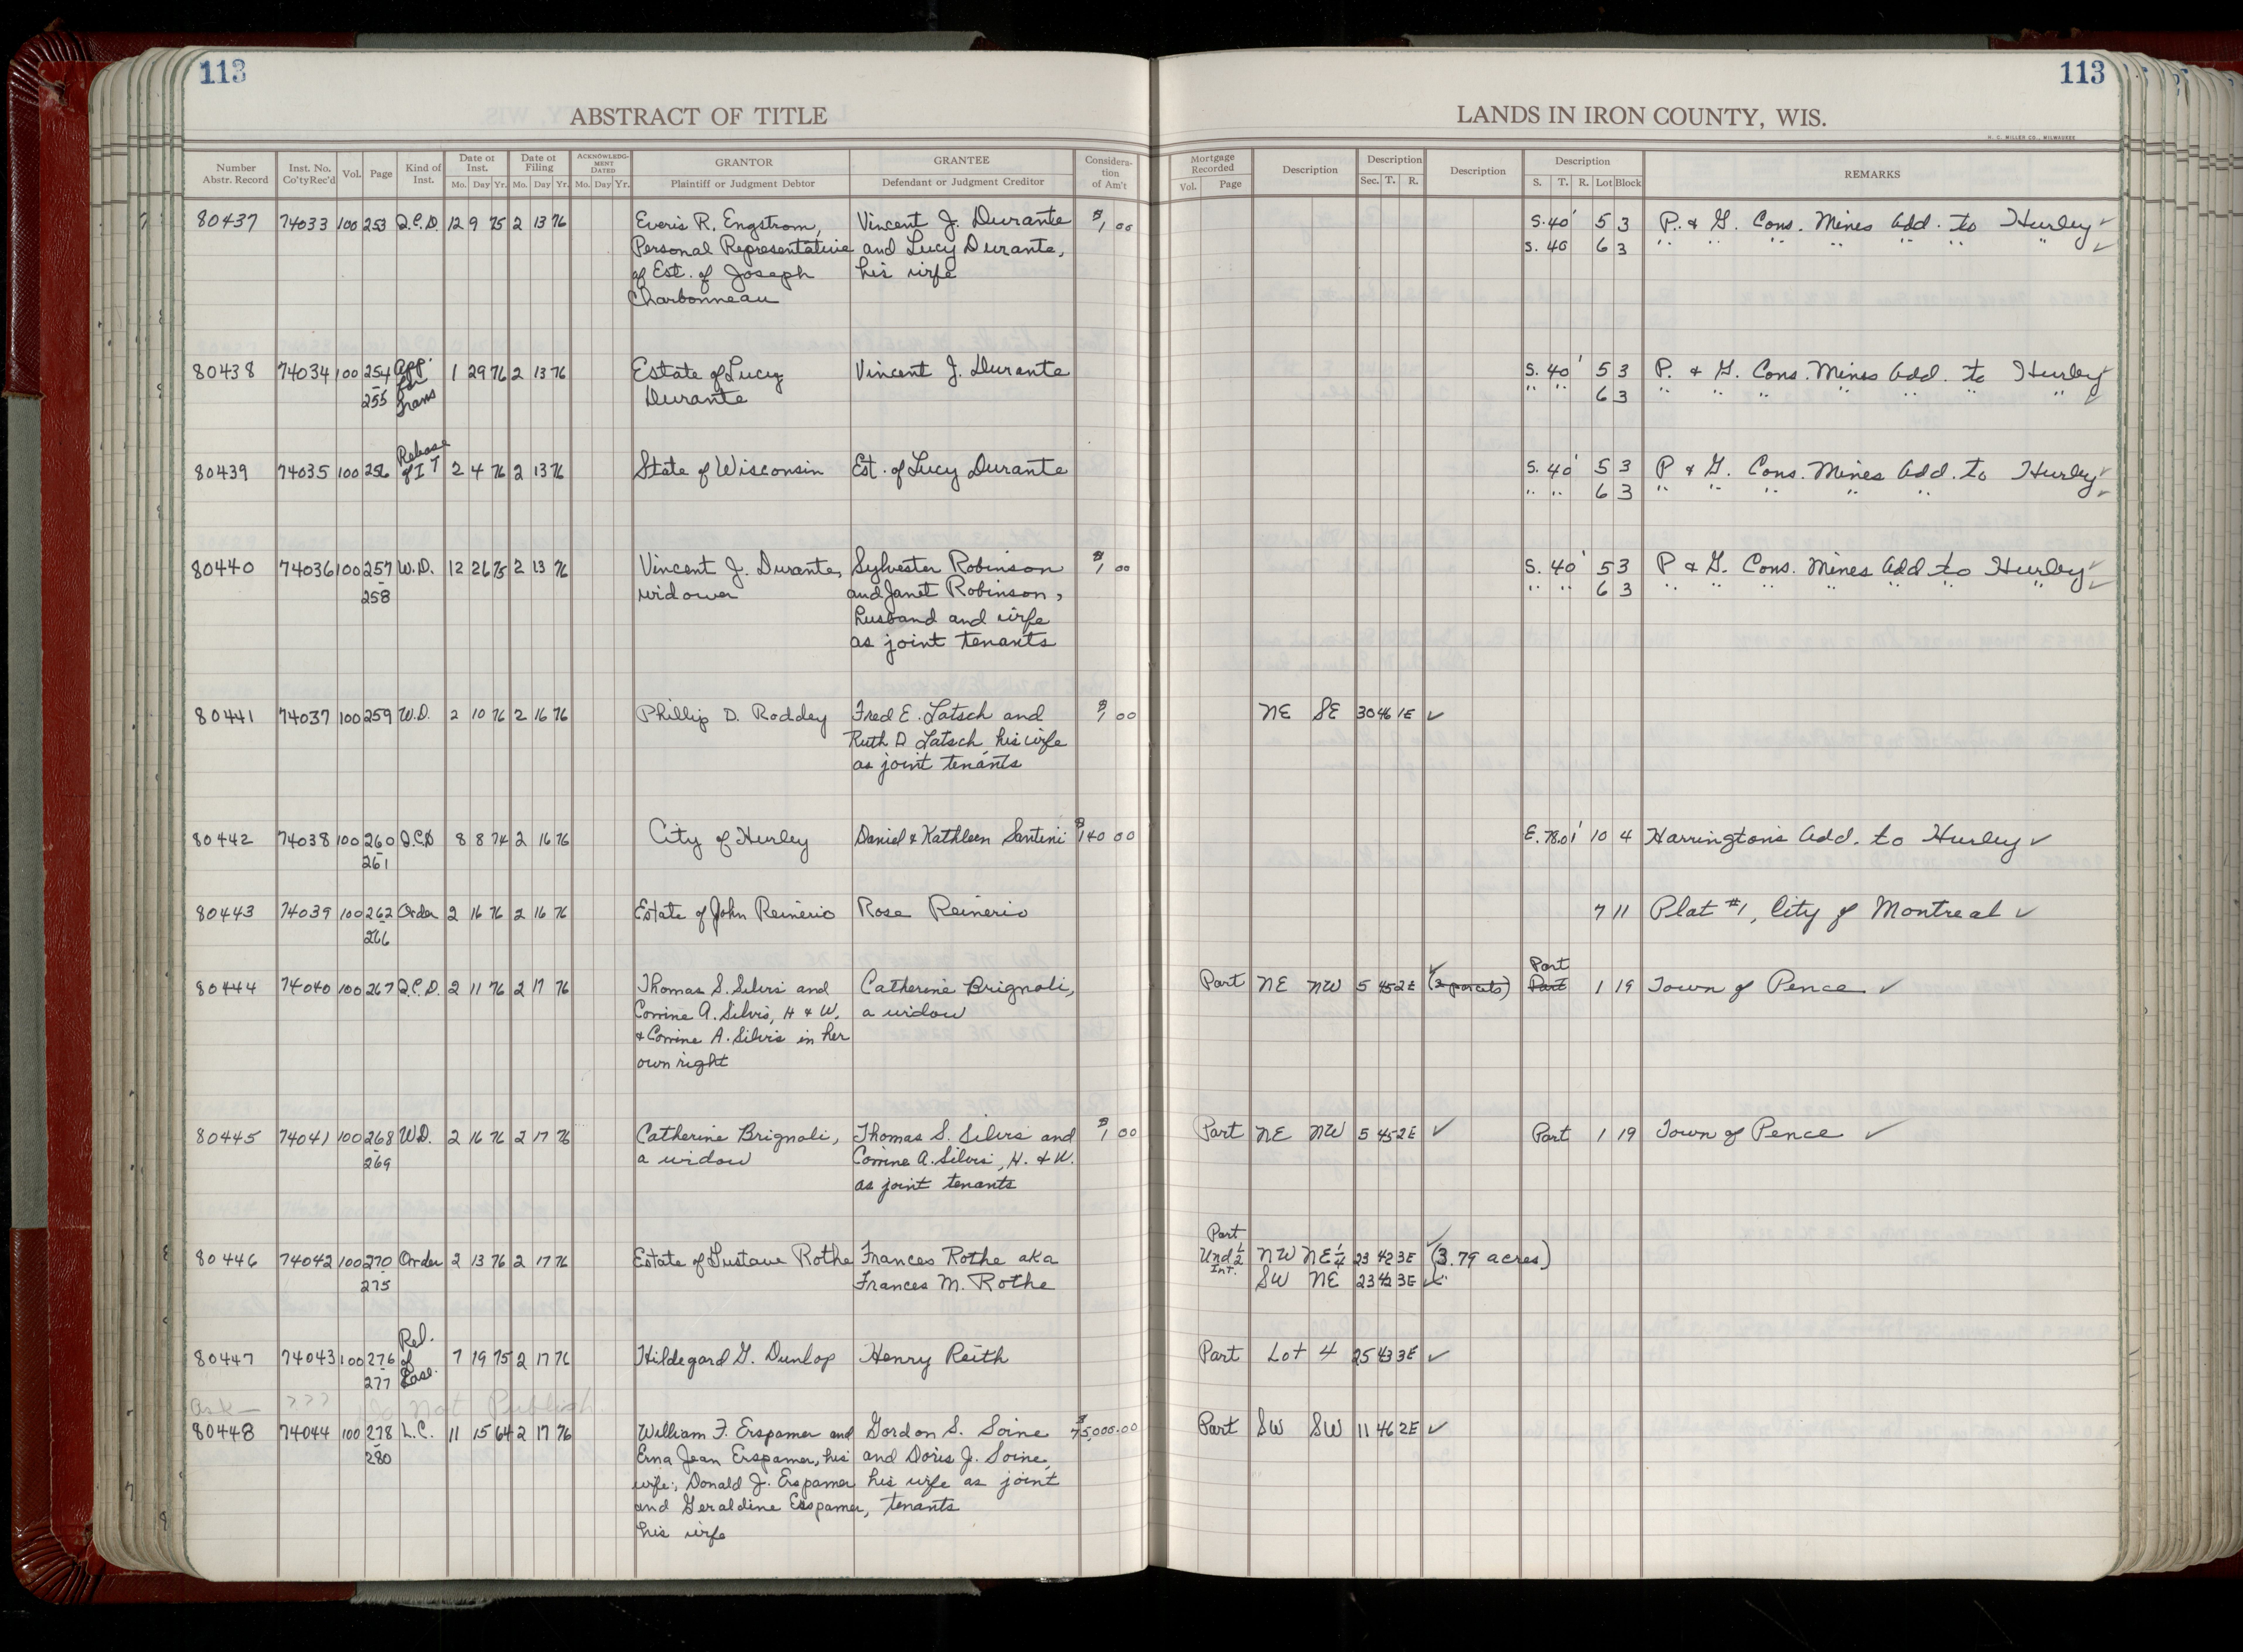 113
113
ABSTRACT OF TITLE
LANDS IN IRON COUNTY, WIS.
H. C. MILLER CO., MILWAUKEE
Number Abstr. Record | Inst. No. Co'ty Rec'd | Vol. | Page | Kind of Inst. | Date of Inst. Mo. Day Yr. | Date of Filing Mo. Day Yr. | ACKNOWLEDGMENT DATED Mo. Day Yr. | GRANTOR Plaintiff or Judgment Debtor | GRANTEE Defendant or Judgment Creditor | Consideration of Am't | Mortgage Recorded Vol. Page | Description | Description Sec. T. R. | Description | Description S. T. R. Lot Block | REMARKS
80437 74033 100 253 Q.C.D. 12 9 75 2 13 76 Everis R. Engstrom, Vincent J. Durante $1 00 S. 40' 5 3 P. & G. Cons. Mines Add. to Hurley ✓
Personal Representative and Lucy Durante, S. 40 6 3 " " " " " " " ✓
of Est. of Joseph his wife
Charbonneau
80438 74034 100 254 App. for Trans 1 29 76 2 13 76 Estate of Lucy Vincent J. Durante S. 40' 5 3 P. & G. Cons. Mines Add. to Hurley ✓
- 255 Durante " " 6 3 " " " " " " " ✓
80439 74035 100 256 Release of I T 2 4 76 2 13 76 State of Wisconsin Est. of Lucy Durante S. 40' 5 3 P & G. Cons. Mines Add. to Hurley ✓
" " 6 3 " " " " " ✓
80440 74036 100 257 W.D. 12 26 75 2 13 76 Vincent J. Durante, Sylvester Robinson $1 00 S. 40' 5 3 P & G. Cons. Mines Add to Hurley ✓
- 258 widower and Janet Robinson, " " 6 3 " " " " " " " ✓
husband and wife
as joint tenants
80441 74037 100 259 W.D. 2 10 76 2 16 76 Phillip D. Roddey Fred E. Latsch and $1 00 NE SE 30 46 1E ✓
Ruth D Latsch, his wife
as joint tenants
80442 74038 100 260 Q.C.D 8 8 74 2 16 76 City of Hurley Daniel & Kathleen Santini $140 00 E. 78.01' 10 4 Harrington's Add. to Hurley ✓
- 261
80443 74039 100 262 Order 2 16 76 2 16 76 Estate of John Reinerio Rose Reinerio 7 11 Plat #1, City of Montreal ✓
- 266
80444 74040 100 267 Q.C.D. 2 11 76 2 17 76 Thomas S. Silvis and Catherine Brignoli, Part NE NW 5 45 2E ✓ (2 parcels) Part Part 1 19 Town of Pence ✓
Corrine A. Silvis, H & W. a widow
& Corrine A. Silvis in her
own right
80445 74041 100 268 WD. 2 16 76 2 17 76 Catherine Brignoli, Thomas S. Silvis and $1 00 Part NE NW 5 45 2E ✓ Part 1 19 Town of Pence ✓
- 269 a widow Corrine A. Silvis, H. & W.
as joint tenants
80446 74042 100 270 Order 2 13 76 2 17 76 Estate of Gustave Rothe Frances Rothe aka Part Und 1/2 Int. NW NE 1/4 23 42 3E ✓ (3.79 acres)
- 275 Frances M. Rothe SW NE 23 42 3E ✓
80447 74043 100 276 Rel. of Ease. 7 19 75 2 17 76 Hildegard G. Dunlop Henry Reith Part Lot 4 25 43 3E ✓
- 277
Ask — ? ? ? Do Not Publish
80448 74044 100 278 L.C. 11 15 64 2 17 76 William F. Erspamer and Gordon S. Soine $75,000.00 Part SW SW 11 46 2E ✓
- 280 Erna Jean Erspamer, his and Doris J. Soine,
wife; Donald J. Erspamer his wife as joint
and Geraldine Erspamer, tenants
his wife